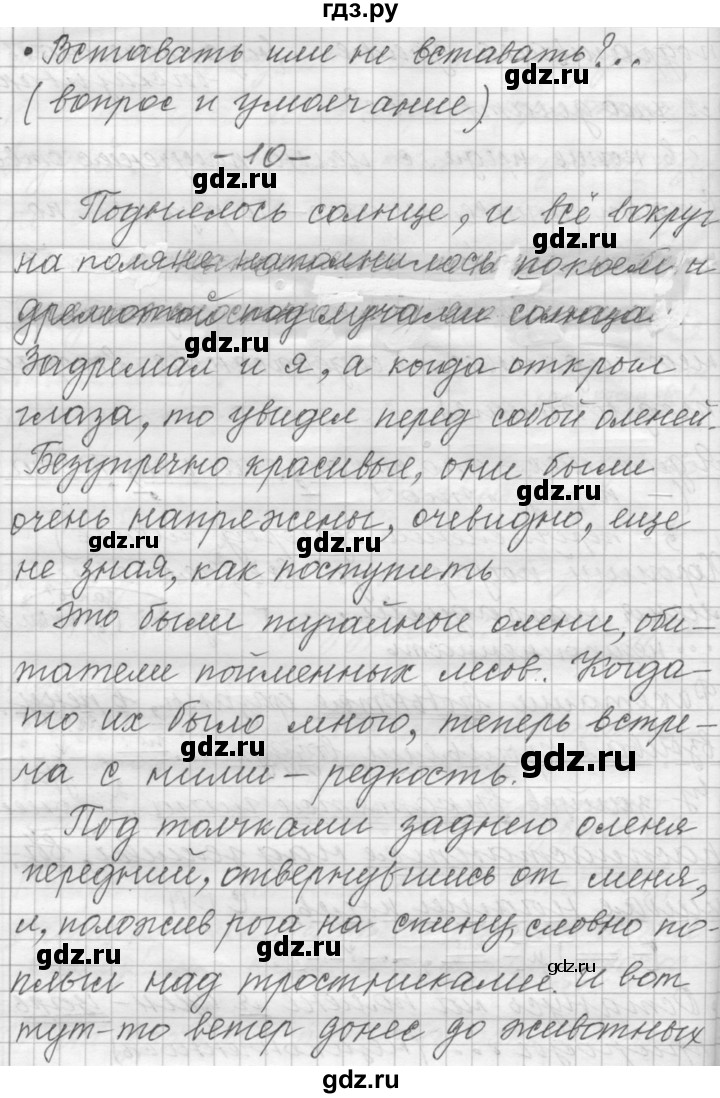 гдз.ру
• Вставать или не вставать?..
gdz.ru
(вопрос и умолчание)
-10-
gdz.ru
Поднялось солнце, и всё вокруг
gdz.ru
на поляне наполнилось покоем и
дремотной под лучами солнца.
gdz.ru
Задремал и я, а когда открыл
глаза, то увидел перед собой оленей.
Безупречно красивые, они были
gdz.ru
очень напряжены, очевидно, еще
gdz.ru
gdz.ru
не зная, как поступить
Это были тугайные олени, оби-
татели пойменных лесов. Когда-
то их было много, теперь встре-
gdz.ru
gdz.ru
ча с ними – редкость.
Под толчками заднего оленя
передний, отвернувшись от меня,
и, положив рога на спину, словно по-
gdz.ru
gdz.ru
плыл над тростниками. И вот
gdz.ru
тут-то ветер донес до животных
gdz.ru